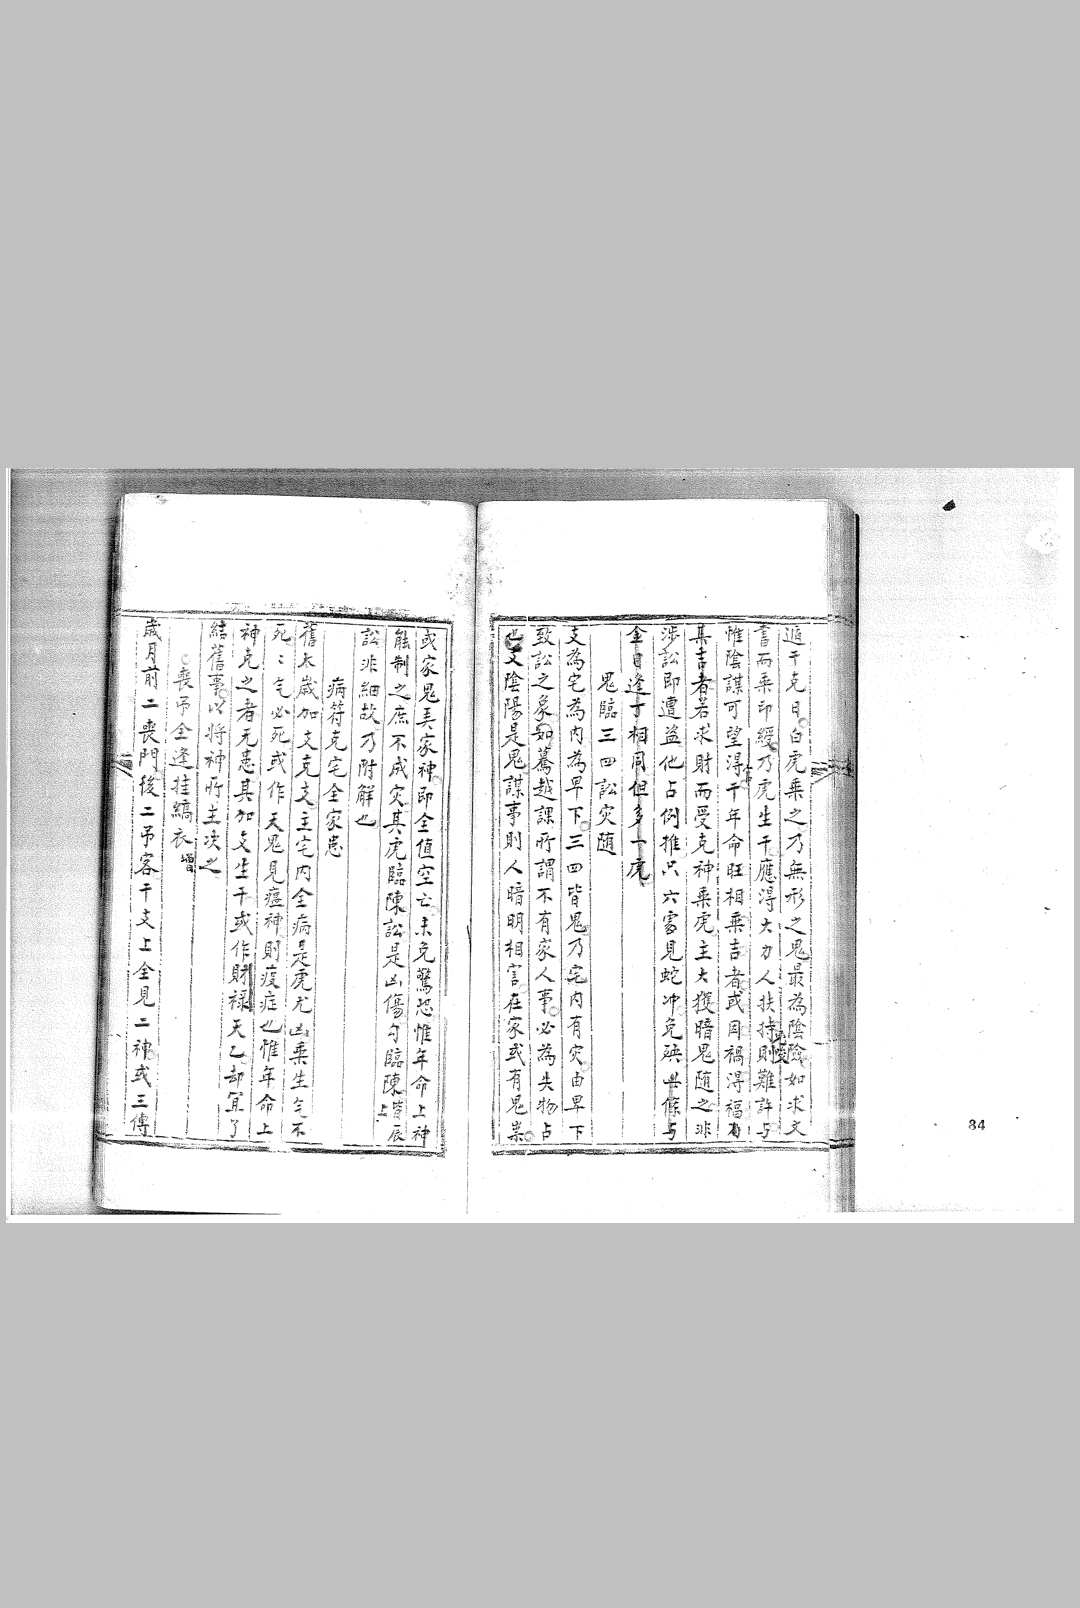 遁干克日白虎乘之乃無形之鬼最為陰險如求文
書而乘印綬乃虎生干應得大力人扶持則難許与
惟陰謀可望得干年命旺相乘吉者或因禍得福有
其吉者若求財而受克神乘虎主大獲暗鬼随之非
涉訟即遭盗他占例推只六处見蛇冲克殃與條与
金日逢丁相同但多一虎
鬼臨三四訟灾随
支為宅為内為卑下三四皆鬼乃宅内有灾由卑下
致訟之象如驀越課所謂不有家人事必為失物占
也又陰陽是鬼謀事則人暗明相害在家或有鬼祟
或家鬼弄家神即全值空亡未免驚恐惟年命上神
能制之庶不成灾其虎臨陳訟是凶傷勾臨陳皆辰上
訟非細故乃附解也
病符克宅全家患
舊太歲加支克支主宅内全病是虎尤凶乘生气不
死死气必死或作天鬼見瘟神則疫症也惟年命上
神克之者无恙其加支生干或作財禄天乙却宜了
結舊事以将神所主决之
喪吊全逢挂縞衣 增
歲月前二喪門後二吊客干支上全見二神或三傳
84